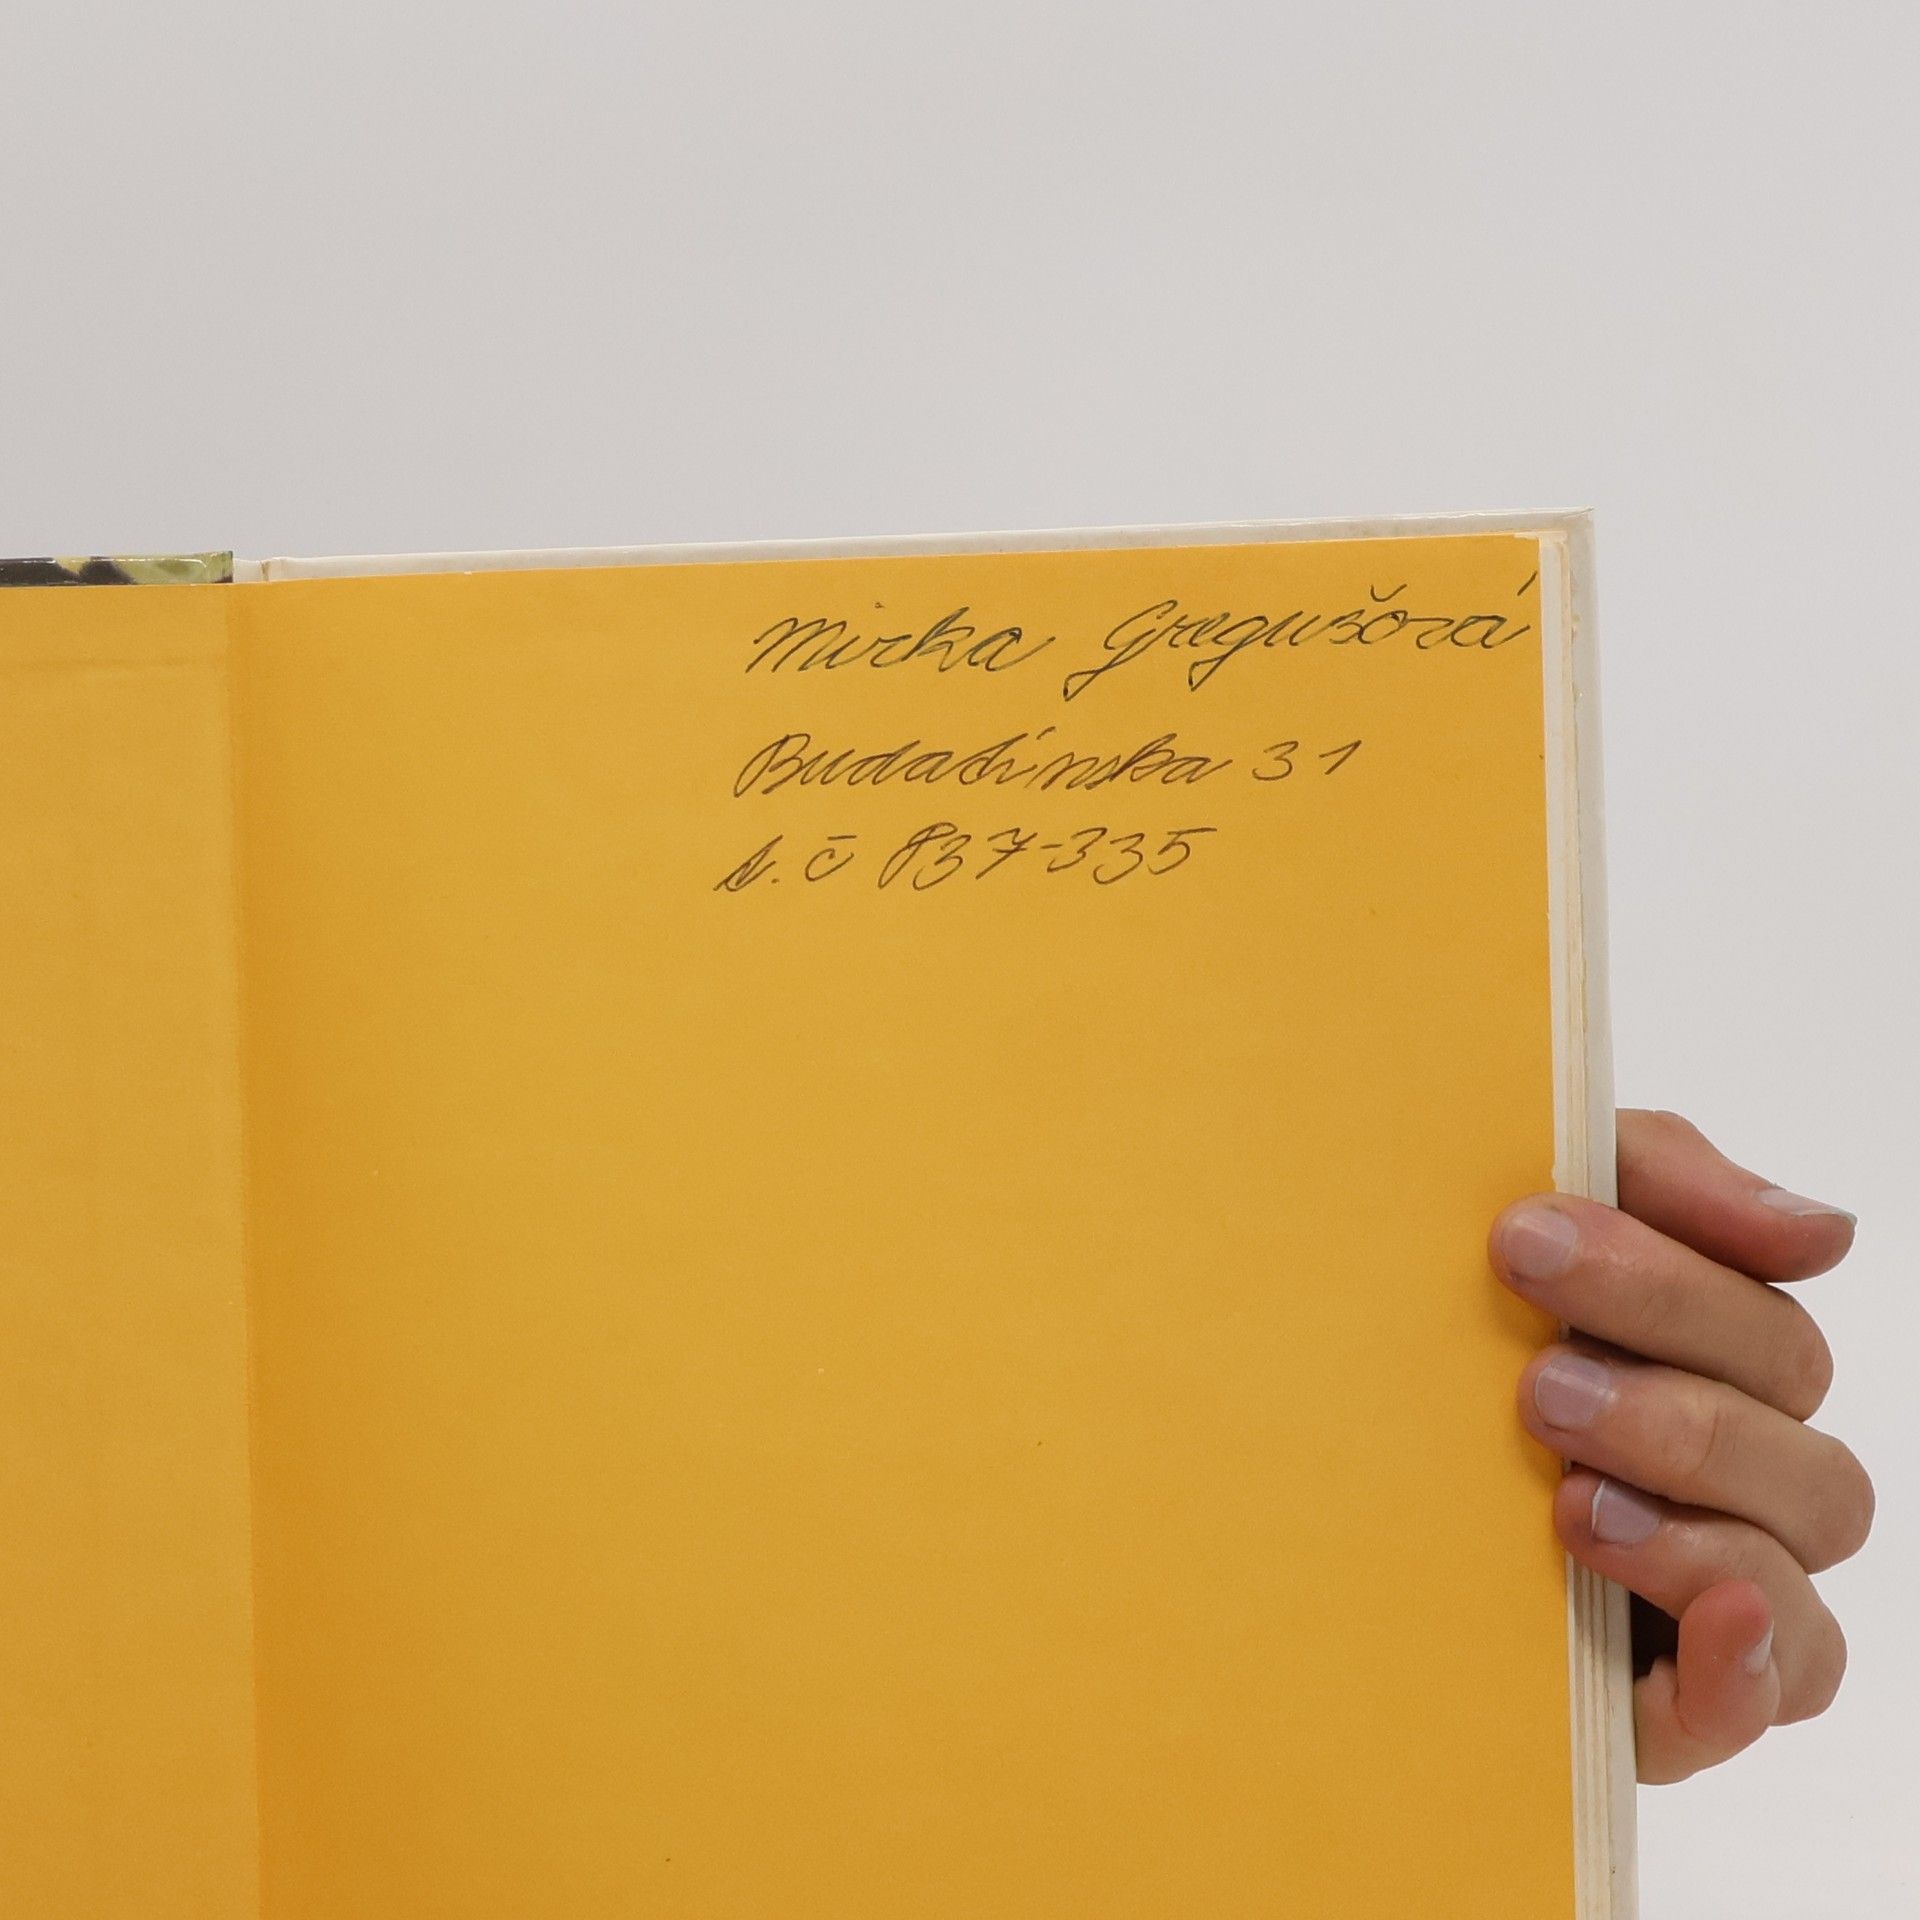 Mirka Gregušová
Budatínska 31
t. č 837-335